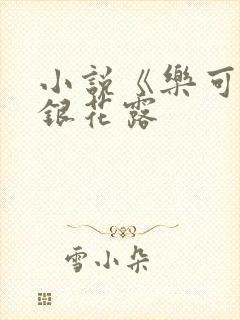 小說《樂可
銀花露
雪小朵